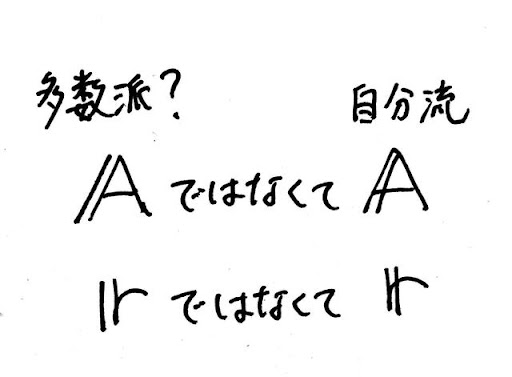 多数派? 自分流
𝔸ではなくて𝔸
𝕣ではなくて𝕣